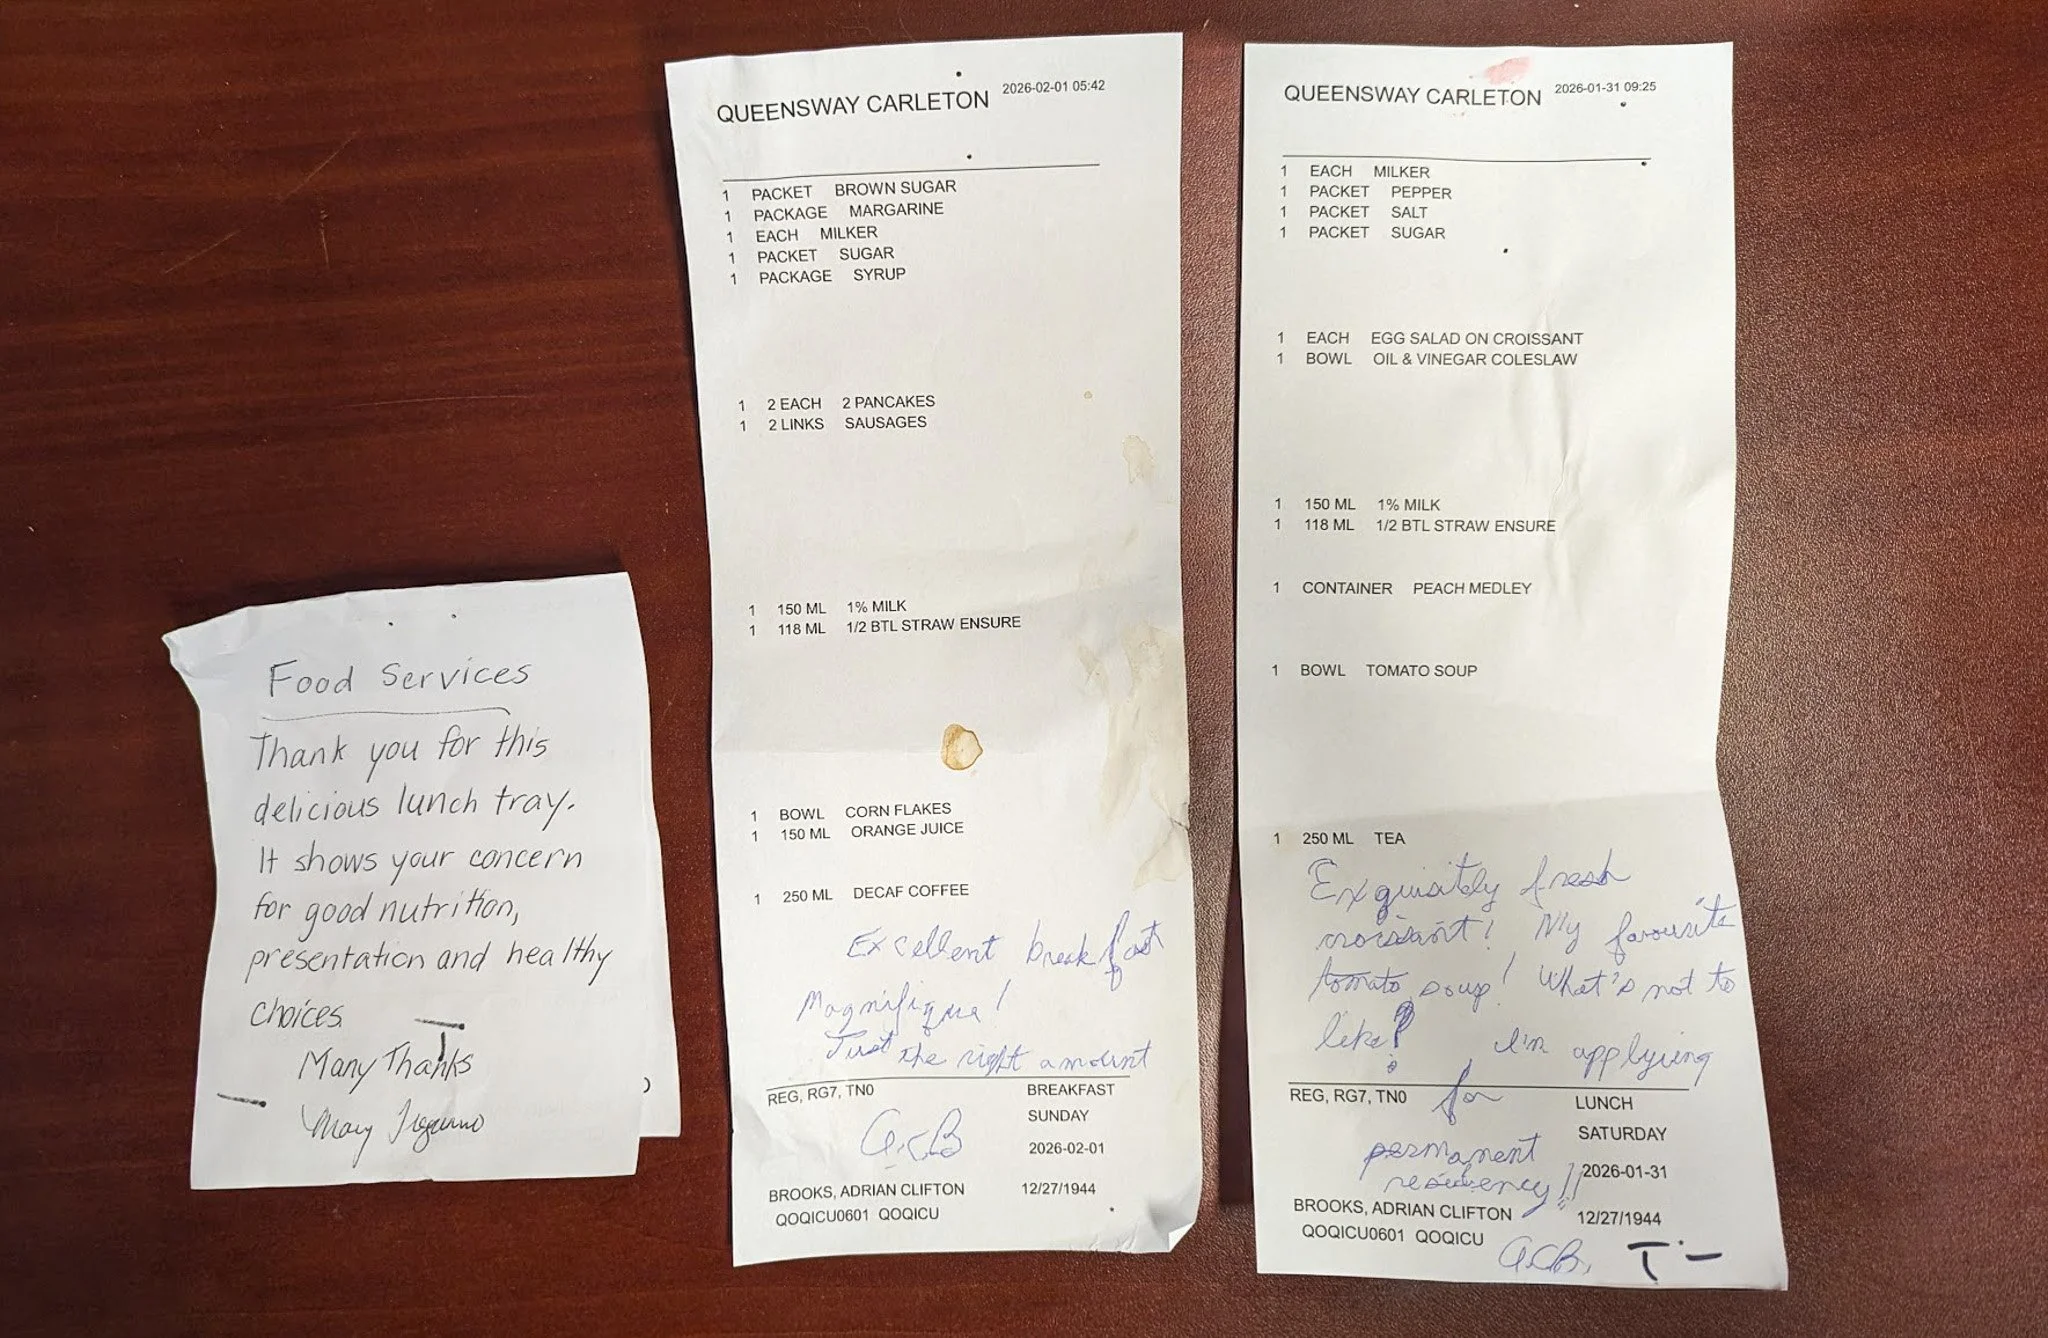 Food Services
Thank you for this
delicious lunch tray.
It shows your concern
for good nutrition,
presentation and healthy
choices.
Many Thanks
Mary
QUEENSWAY CARLETON 2026-02-01 05:42
1 PACKET BROWN SUGAR
1 PACKAGE MARGARINE
1 EACH MILKER
1 PACKET SUGAR
1 PACKAGE SYRUP
1 2 EACH 2 PANCAKES
1 2 LINKS SAUSAGES
1 150 ML 1% MILK
1 118 ML 1/2 BTL STRAW ENSURE
1 BOWL CORN FLAKES
1 150 ML ORANGE JUICE
1 250 ML DECAF COFFEE
Excellent breakfast
Magnifique!
Just the right amount
REG, RG7, TN0 BREAKFAST
SUNDAY
A.C.B
2026-02-01
BROOKS, ADRIAN CLIFTON 12/27/1944
QOQICU0601 QOQICU
QUEENSWAY CARLETON 2026-01-31 09:25
1 EACH MILKER
1 PACKET PEPPER
1 PACKET SALT
1 PACKET SUGAR
1 EACH EGG SALAD ON CROISSANT
1 BOWL OIL & VINEGAR COLESLAW
1 150 ML 1% MILK
1 118 ML 1/2 BTL STRAW ENSURE
1 CONTAINER PEACH MEDLEY
1 BOWL TOMATO SOUP
1 250 ML TEA
Exquisitely fresh
croissant! My favourite
tomato soup! What's not to
like? I'm applying
for
REG, RG7, TN0 LUNCH
SATURDAY
permanent
residency!!
2026-01-31
BROOKS, ADRIAN CLIFTON 12/27/1944
QOQICU0601 QOQICU
A.C.B.